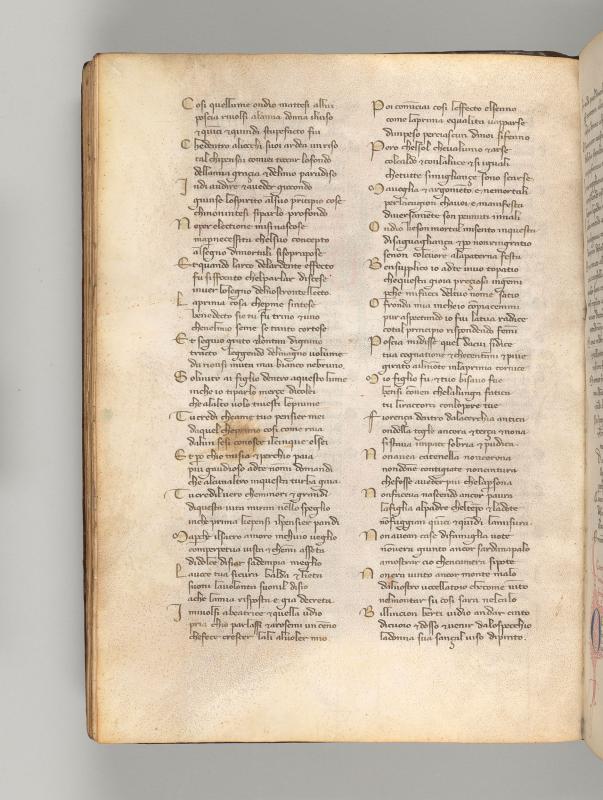 Cosi quellume ondio mattesi allui
poscia rivolsi alamia donna ilviso
& quici & quindi stupefacto fui
Chedentro aliocchi suoi ardea unriso
tal chipensai comiei tocar lofondo
dellamia gracia & delmio paradiso
Indi audire & aveder giocondo
giunse lospirito alsuo principio cose
chinonintesi siparlo profondo
Ne per electione misinascose
mapnecessita chelsuo concepto
alsegno dimortali sisoprapose
Et quando larco delardente affecto
fu sisfocato chelparlar discese
inver losegno delnostro intellecto
La prima cosa cheper me sintese
benedecto sie tu fu trino & uno
chenelmio seme se tanto cortese
Et seguio grato & lontan digiuno
tracto leggendo delmagno volume
du nonsi muta mai bianco nebruno
Soluto ai figlio dentro aquesto lume
inche io tiparlo merçe dicolei
che alalto volo tivesti lepiume
Tu credi cheame tuo pensier mei
daquel cheprimo cosi come raia
dalun sesi conosce ilcinque elsei
Et po chio misia & perchio paia
piu gaudioso adte nomi domandi
che alcunaltro inquesta turba gaia
Tu credi il vero chemnori & grandi
diquesta vita miran nello speglio
inche prima chepensi ilpensier pandi
Ma perche ilsacro amore inchuio veglio
conperpetua vista & chemi asseta
didolce disiar sadempia meglio
La voce tua sicura balda & lieta
suoni lavolonta suonil disio
ache lamia risposta e gia decreta
Imivolsi abeatrice & quella udio
pria chio parlassi & arosemi un ceno
chefece crescer lali alvoler mio
Poi cominciai cosi leffecto elsenno
come laprima equalita vapparse
dunpeso perciascun dinoi sifenno
Pero chelsol chevalumo & arse
colcaldo & conlaluce & si iguali
chetutte simigliançe sono scarse
Ma voglia & argomento ne mortali
perlacagion chavoi e manifesta
diversamente son pennuti inali
Ondio cheson mortal misento inquesta
disaguagliança & po nonringratio
senon colcuore alapaterna festa
Ben supplico io adte vivo topatio
chequesta gioia preciosa ingemi
pche mifacci deltuo nome satio
O fronda mia incheio compiacemmi
pur aspectando io fui latua radice
cotal principio rispondendo femi
Poscia midisse quel dacui sidice
tua cognatione & checentanni & piue
girato ailmonte inlaprima cornice
Mio figlio fu & tuo bisavo fue
bensi conven chelalunga fatica
tu liraccorci conlopere tue
Fiorença dentro dalacerchia antica
ondella togle ancora & terça & nona
sistava inpace sobria & pudica
Nonavea catenella noncorona
nondonne contigiate noncintura
chefosse aveder piu chelapsona
Nonfaceva nascendo ancor paura
lafiglia alpadre cheltempo & ladote
nofuggian quici & quindi lamisura
Nonavean case difamiglia vote
nonvera giunto ancor sardanapalo
amostrar cio chencamera sipote
Nonera vinto ancor monte malo
dalvostro uccellatoio checome vito
nelmontar su cosi sara nelcalo
Billincion berti vidio andar cinto
dicuoio & dosso & venir dalospecchio
ladonna sua sançal viso dipinto.